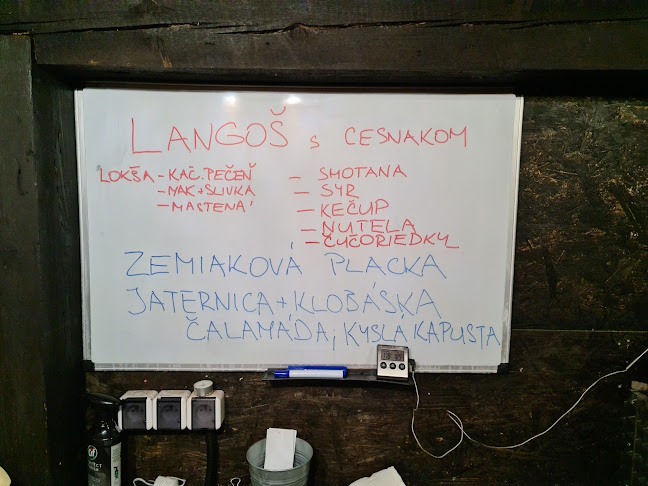 LANGOŠ s CESNAKOM
LOKŠA - KAČ. PEČEŇ
- MAK + SLIVKA
- MASTENÁ
- SMOTANA
- SYR
- KEČUP
- NUTELA
- ČUČORIEDKY
ZEMIAKOVÁ PLACKA
JATERNICA + KLOBÁSKA
ČALAMÁDA, KYSLÁ KAPUSTA
cif